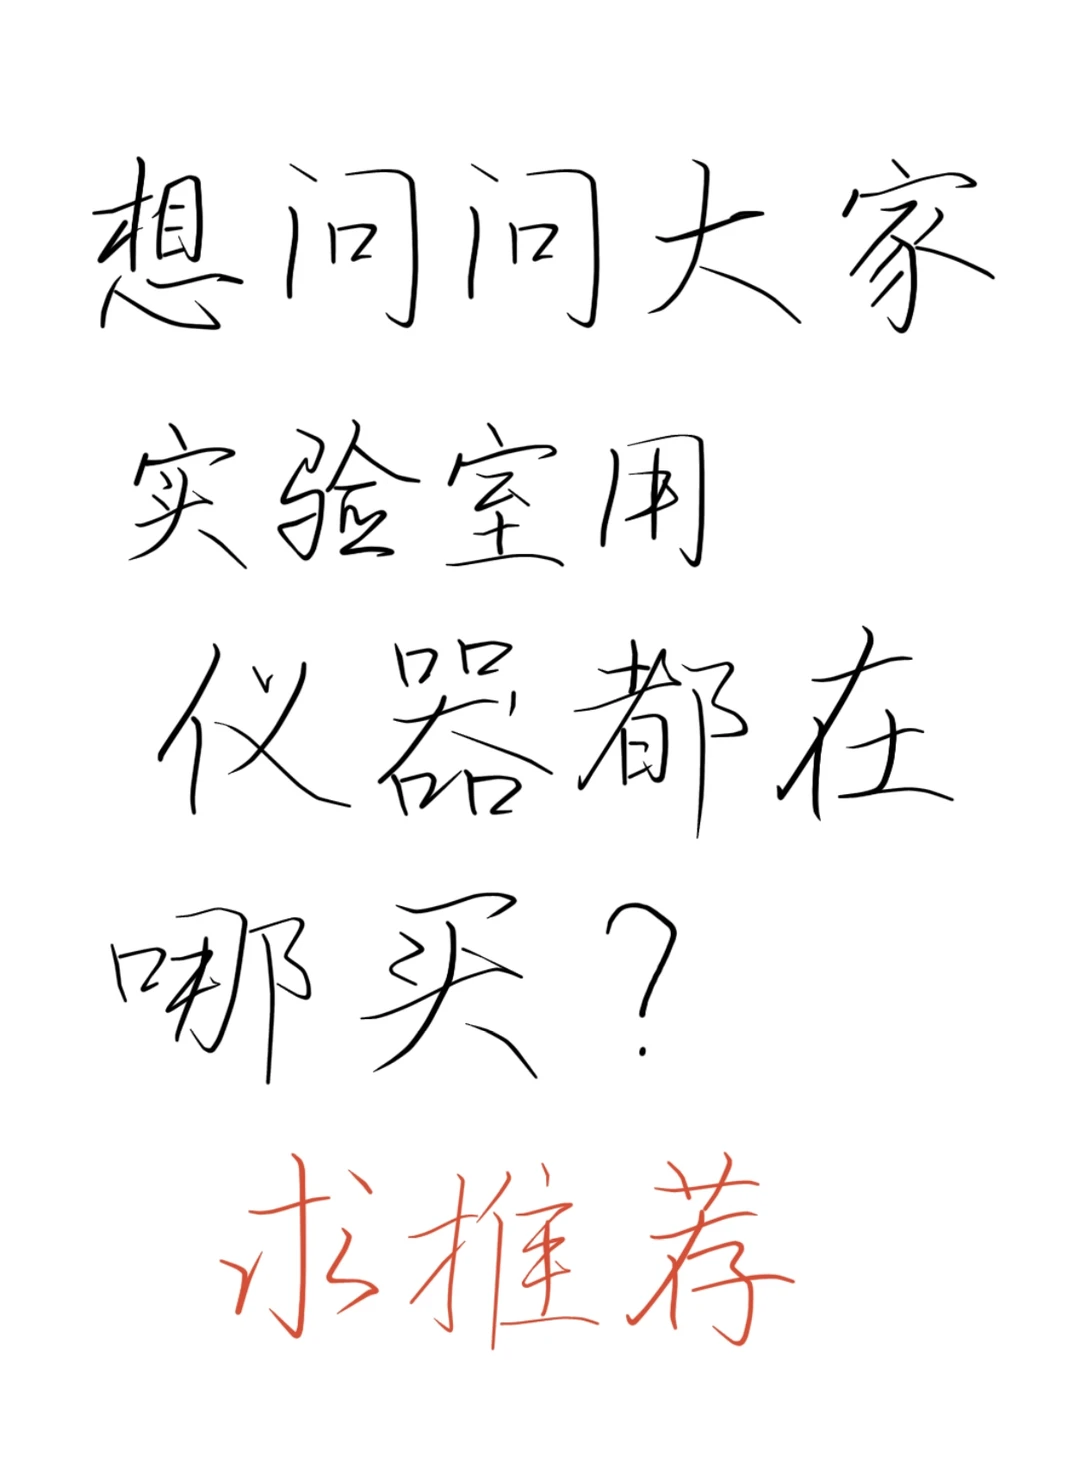 想问问大家
实验室用
仪器都在
哪买？
求推荐